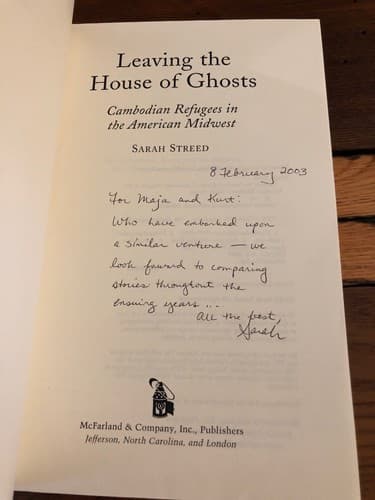 Leaving the
House of Ghosts
Cambodian Refugees in
the American Midwest
SARAH STREED
8 February 2003
For Maja and Kurt:
Who have embarked upon
a similar venture — we
look foward to comparing
stories throughout the
ensuing years...
All the best,
Sarah
McFarland & Company, Inc., Publishers
Jefferson, North Carolina, and London